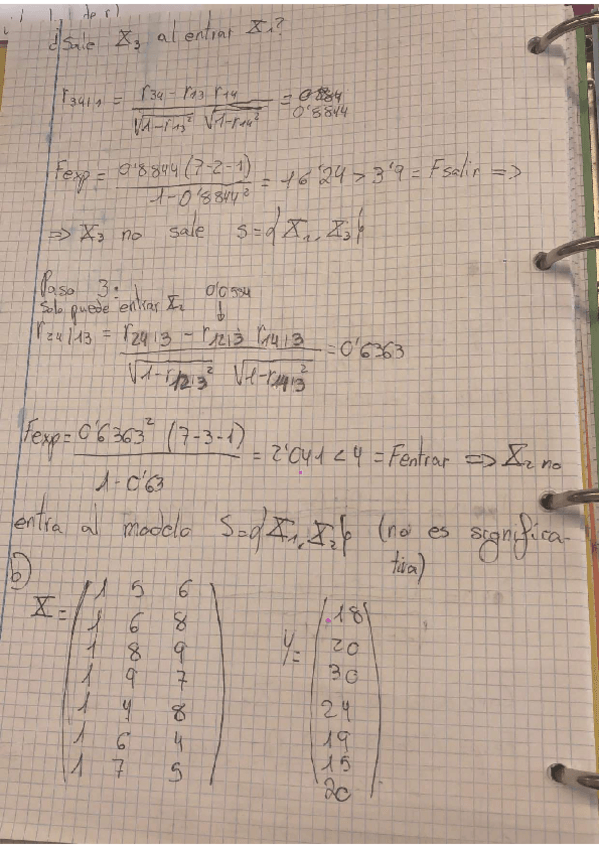 ¿Sale X₃ al entrar X₁?
r₃₄|₁ = (r₃₄ - r₁₃ r₁₄) / (√(1-r₁₃²) √(1-r₁₄²)) = 0'8844
Fexp = 0'8844 (7-2-1) / (1-0'8844²) = 16'24 > 3'9 = Fsalir =>
=> X₃ no sale S={X₁, X₃}
Paso 3:
Solo puede entrar X₂
r₂₄|₁₃ = (r₂₄|₃ - r₁₂|₃ r₁₄|₃) / (√(1-r₁₂|₃²) √(1-r₁₄|₃²)) = 0'6363
Fexp = 0'6363² (7-3-1) / (1-0'63) = 2'041 < 4 = Fentrar => X₂ no
entra al modelo S={X₁, X₂} (no es significa-
tiva)
b)
X =
1 5 6
1 6 8
1 8 9
1 9 7
1 4 8
1 6 4
1 7 5
Y =
18
20
30
24
19
15
20